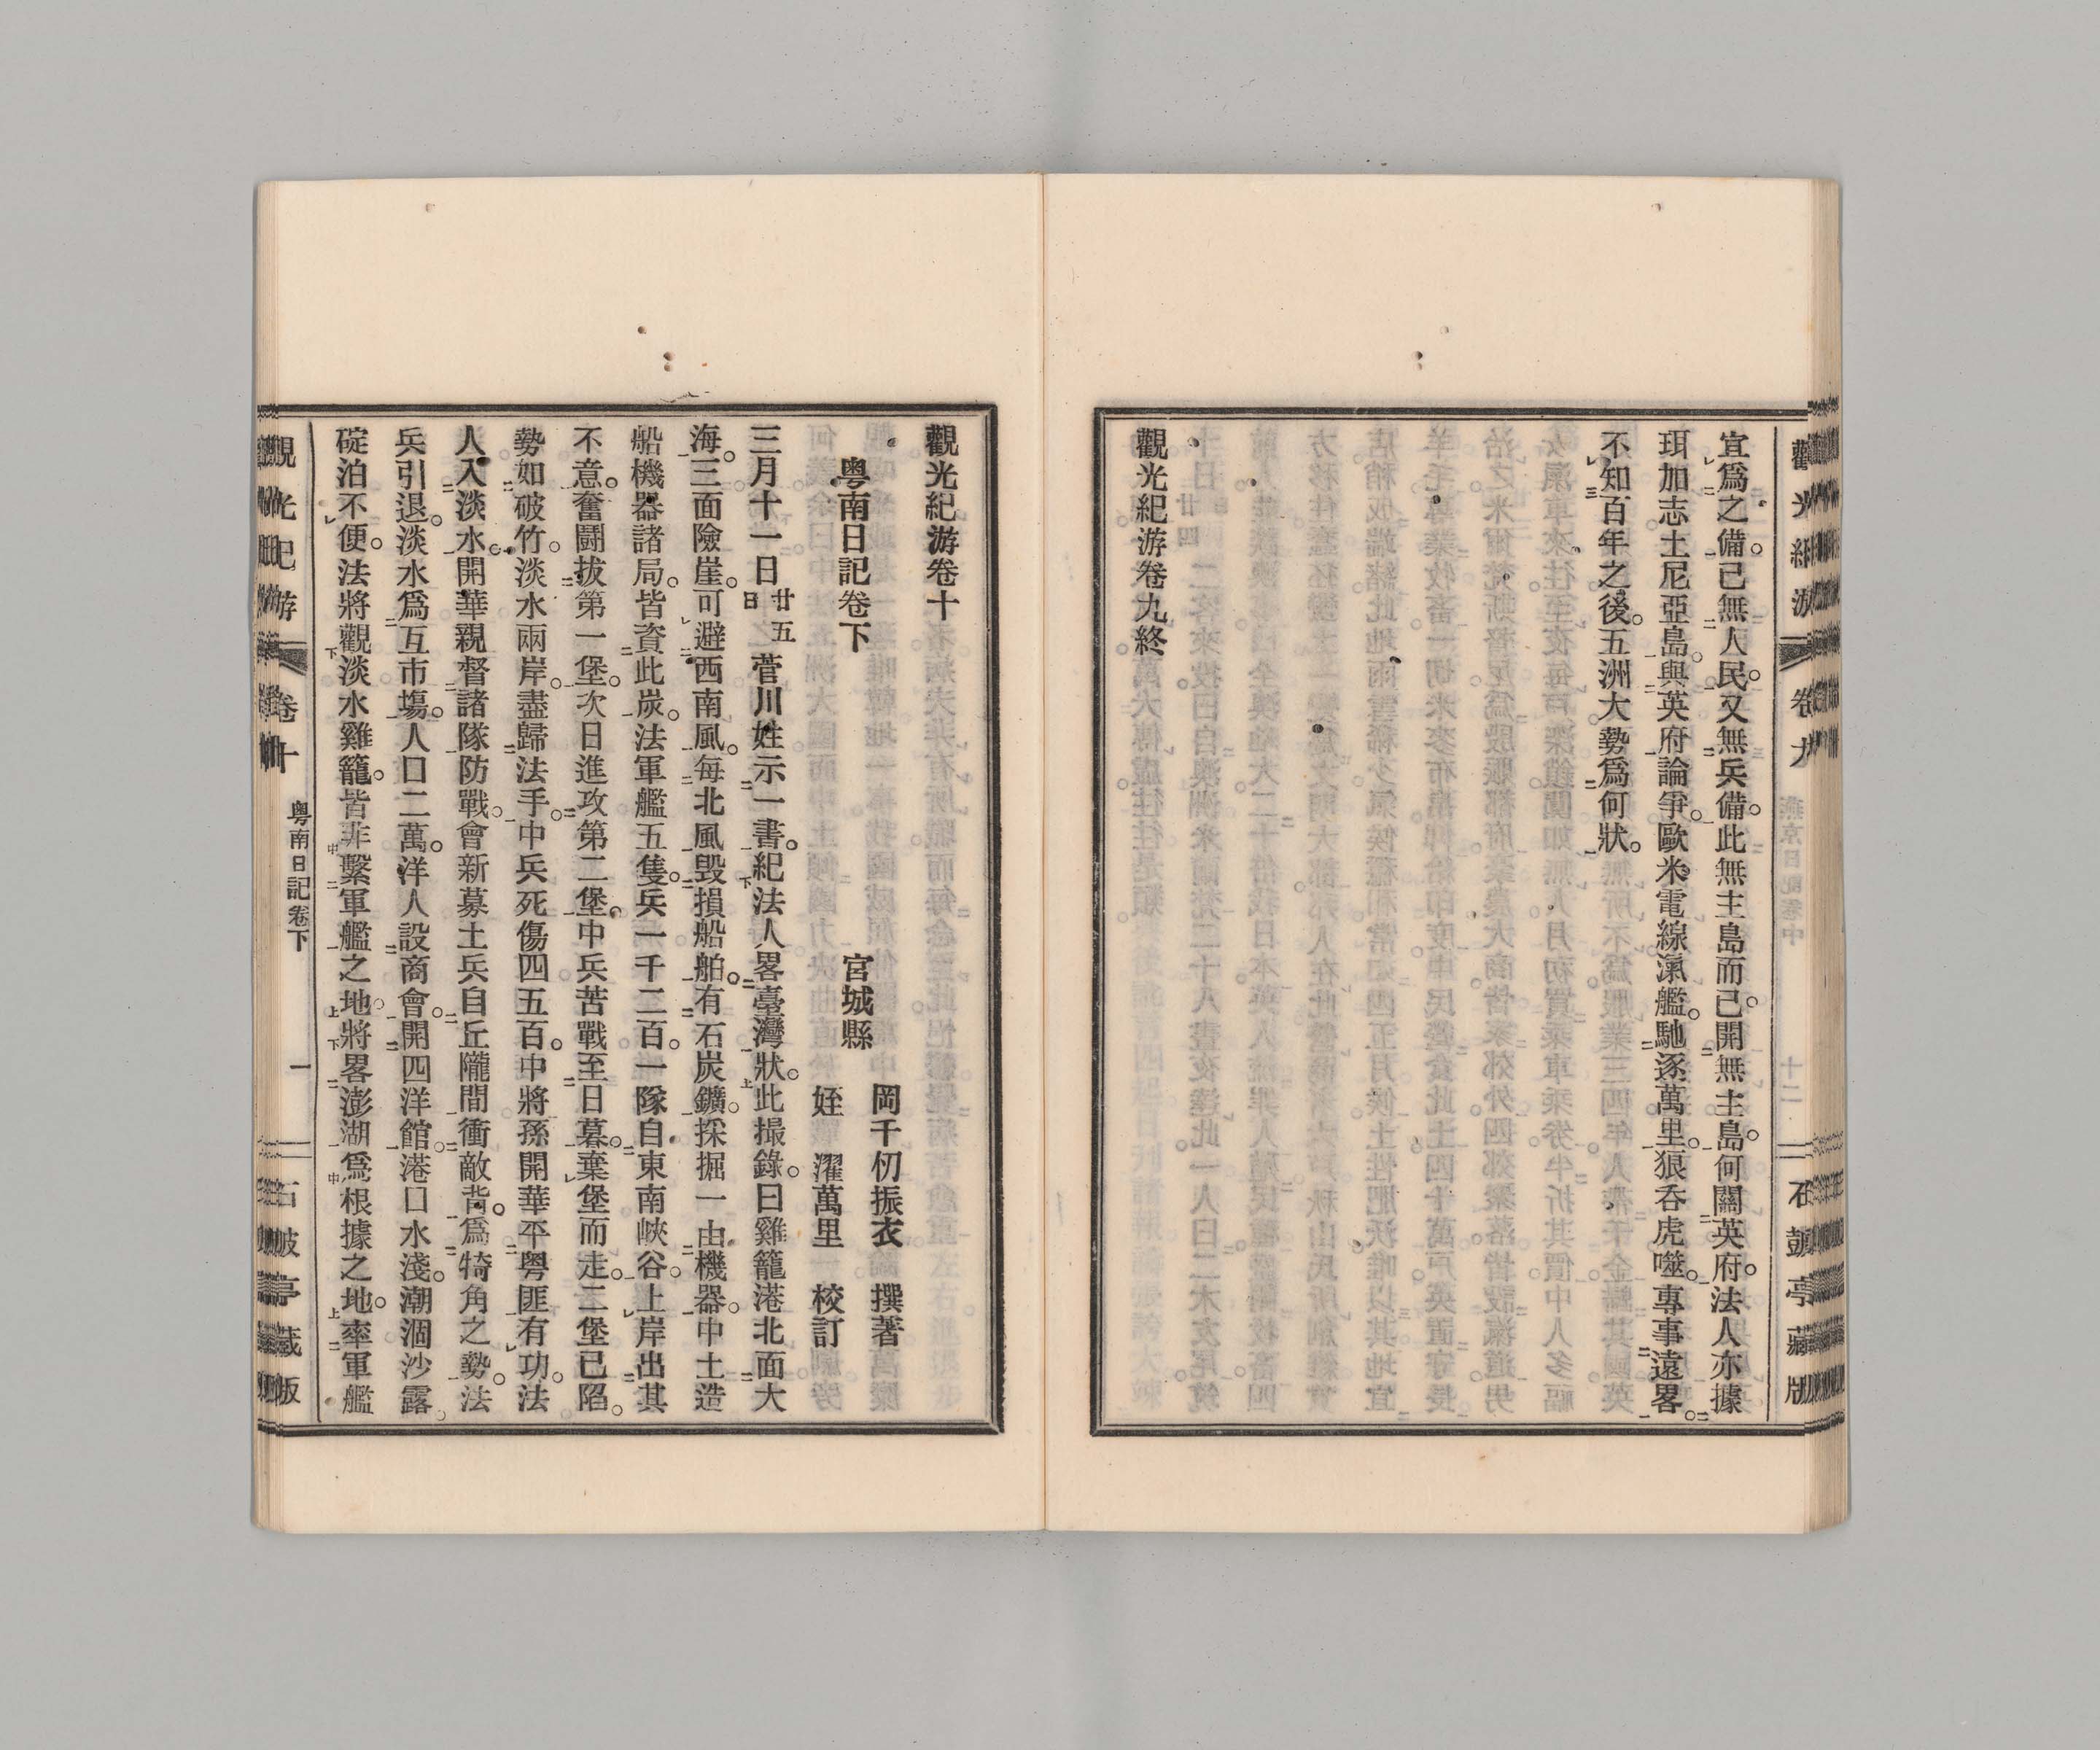 宜爲之備。已無人民。又無兵備。此無主島而已。開無主島。何關英府。法人亦據
珥加志土尼亞島。與英府論爭。歐米電線滊艦。馳逐萬里。狼呑虎噬。專事遠畧。
不知百年之後。五洲大勢爲何狀。
觀光紀游卷九終
觀光紀游卷十
粤南日記卷下
宮城縣
岡千仞振衣 撰著
姪 濯萬里 校訂
三月十一日廿五日菅川姓示一書。紀法人畧臺灣狀。此撮錄。曰雞籠港北面大
海。三面險崖。可避西南風。每北風毀損船舶。有石炭鑛。採掘一由機器。中土造
船機器諸局。皆資此炭。法軍艦五隻。兵一千二百。一隊自東南峽谷。上岸出其
不意。奮鬪拔第一堡。次日進攻第二堡。中兵苦戰至日暮。棄堡而走。二堡已陷。
勢如破竹。淡水兩岸。盡歸法手。中兵死傷四五百。中將孫開華平粤匪有功。法
人入淡水。開華親督諸隊防戰。會新募土兵自丘隴間衝敵背。爲犄角之勢。法
兵引退。淡水爲互市塲。人口二萬。洋人設商會。開四洋館。港口水淺。潮涸沙露。
碇泊不便。法將觀淡水雞籠。皆非繫軍艦之地。將畧澎湖爲根據之地。率軍艦
觀光紀游 卷十 粤南日記卷下 一